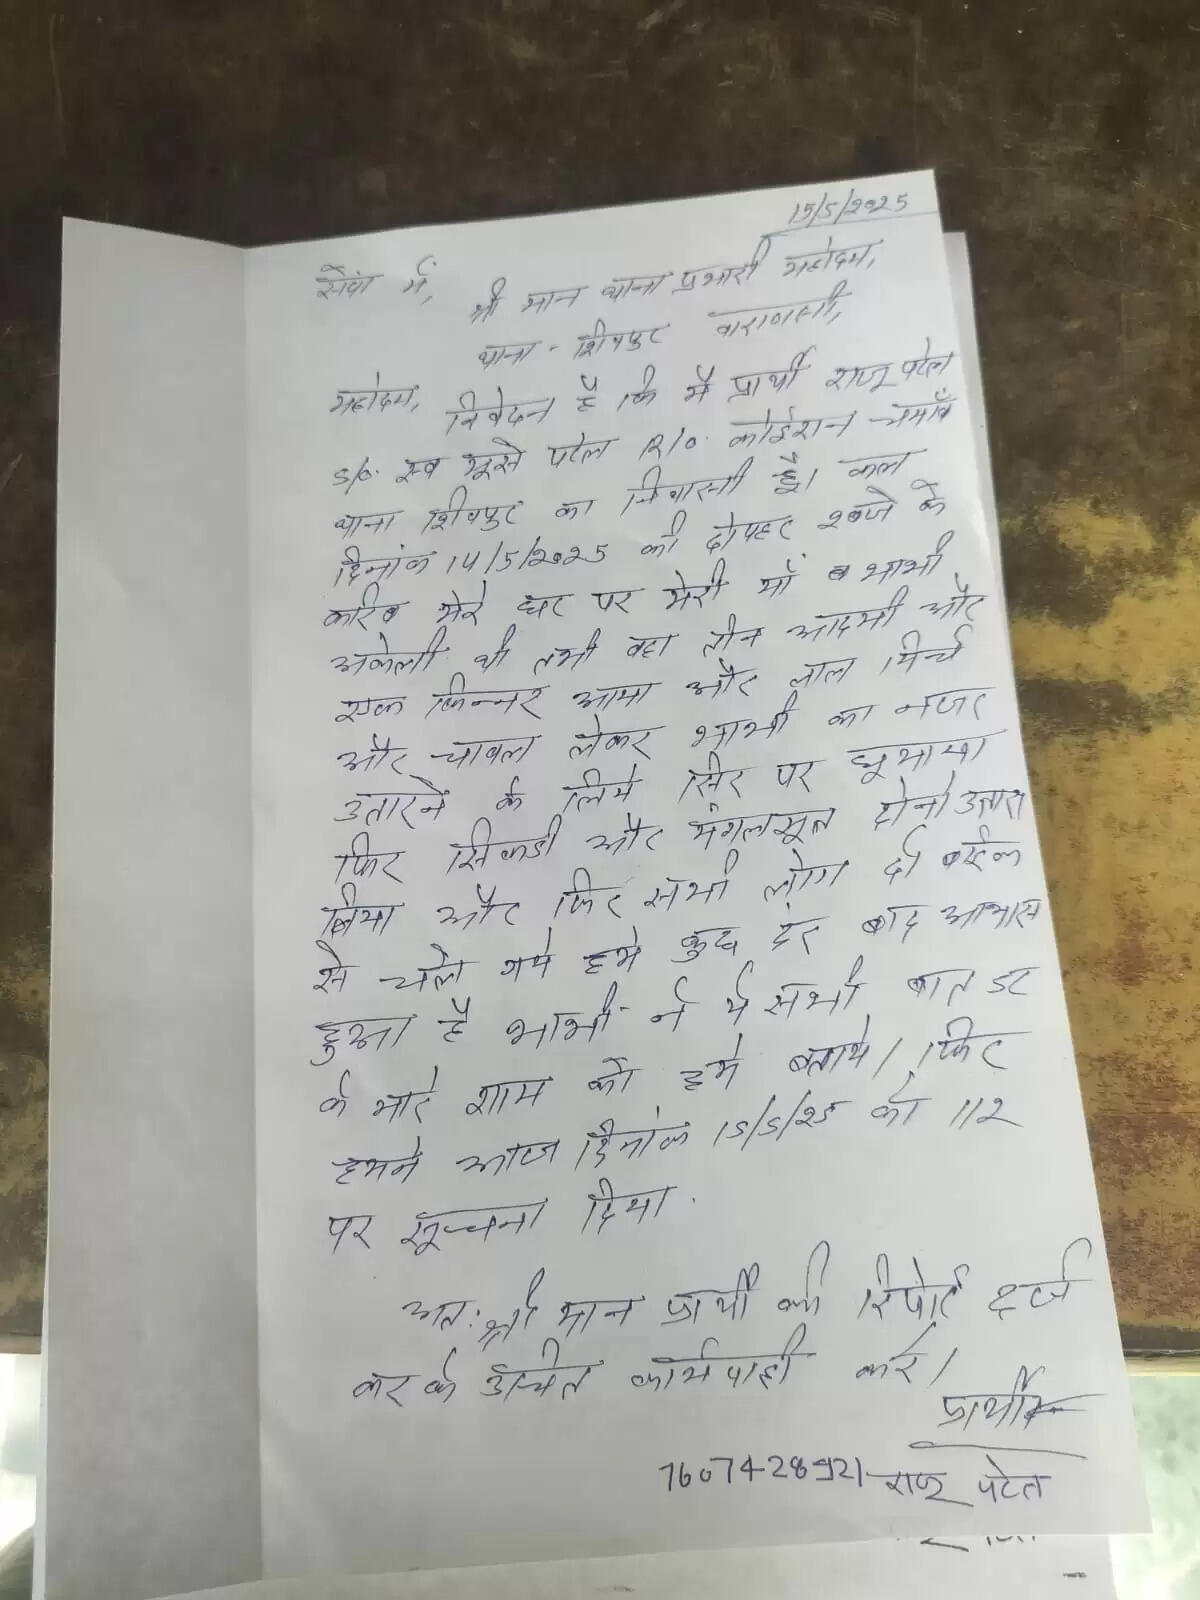 15/5/2025
सेवा में,
श्री मान थाना प्रभारी महोदय,
थाना - शिवपुर वाराणसी,
महोदय, निवेदन है कि मै प्रार्थी राजू पटेल
S/o. स्व भूसे पटेल R/o. कोईरान चमाँव
थाना शिवपुर का निवासी हूँ। कल
दिनांक 14/5/2025 को दोपहर 2बजे के
करिब मेरे घर पर मेरी माँ व भाभी
अकेली थी तभी वहा तीन आदमी और
एक किन्नर आया और लाल मिर्च
और चावल लेकर भाभी का नजर
उतारने के लिये सिर पर घूमाया
फिर सिकडी और मंगलसूत्र दोनो उतार
लिया और फिर सभी लोग दो बाईक
से चले गये हमे कुछ देर बाद आभास
हुआ है भाभी ने ये सभी बात डर
के मारे शाम को हमे बताये। फिर
हमने आज दिनांक 15/5/25 को 112
पर सूचना दिया.
अत: श्री मान प्रार्थी की रिपोर्ट दर्ज
कर के उचित कार्यवाही करे।
प्रार्थी
7607428921 राजू पटेल